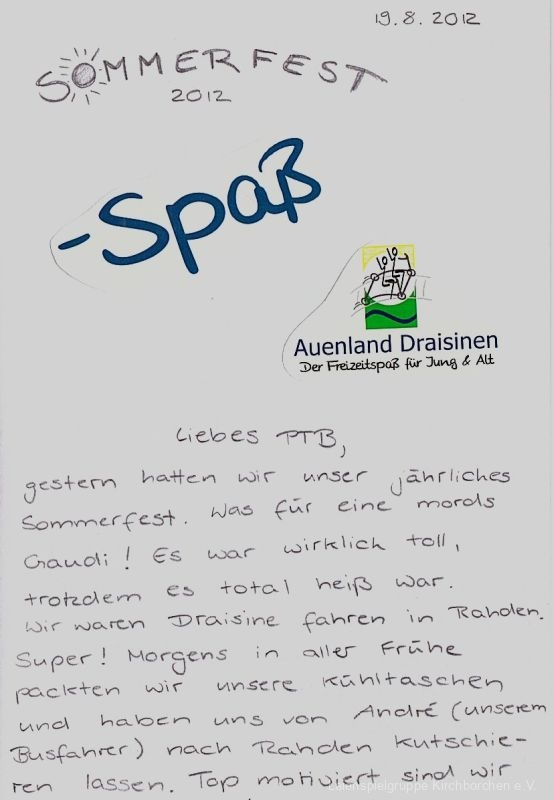 19.8.2012
SOMMERFEST
2012
-Spaß
Auenland Draisinen
Der Freizeitspaß für Jung & Alt
Liebes PTB,
gestern hatten wir unser jährliches
Sommerfest. Was für eine mords
Gaudi! Es war wirklich toll,
trotzdem es total heiß war.
Wir waren Draisine fahren in Rahden.
Super! Morgens in aller Frühe
packten wir unsere Kühltaschen
und haben uns von André (unserem
Busfahrer) nach Rahden kutschie-
ren lassen. Top motiviert sind wir
Laienspielgruppe Kirchborchen e.V.